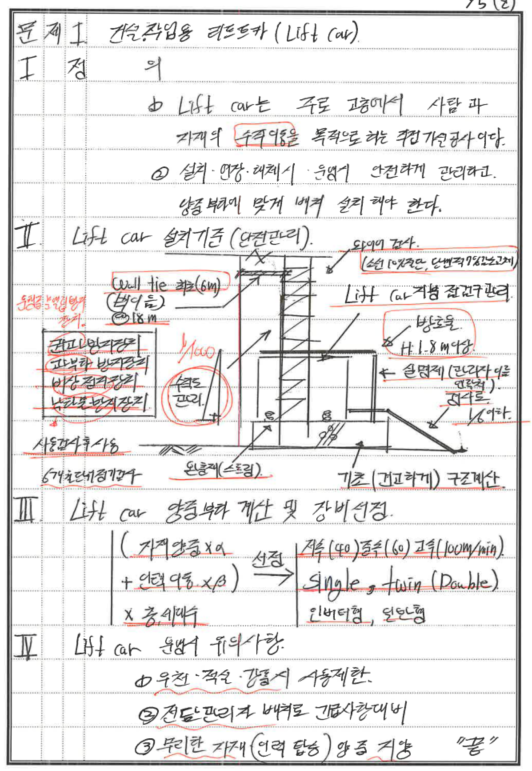 75(2)
문제1 건설작업용 리프트카(Lift car).
I 정의
① Lift car는 주로 고층에서 사람과
자재의 수직이동을 목적으로 하는 주접가설공사이다.
② 설치·연장·해체시·운행시 안전하게 관리하고.
양중부하에 맞게 배치 설치해야 한다.
II. Lift car 설치기준(안전관리).
와이어 검사.
(소선 10%절단,
Wall tie 최초(6m)
(벽이음)
18m
Lift car 지붕 점검구 관리.
방호울
H 1.8m 이상.
1/1000
수직도
관리.
권과 방지장치
과부하 방지장치
비상정지장치
낙하물방지장치
설명제(관리자 이름
연락처)
경사로
1/6이하.
사용검사후 사용
6개월 단위 정기검사
완충재(스프링)
기초(견고하게) 구조계산.
III. Lift car 양중부하 계산 및 장비선정.
(자재양중×α
+ 인력이동×β)
× 층,세대수
선정
저속(40) 중속(60) 고속(100m/min).
Single, twin(Double)
인버터형, 일반형
IV Lift car 운행시 유의사항.
① 우천·적설·강풍시 사용제한.
② 전담관리자 배치로 긴급사항대비
③ 무리한 자재(인력 탑승) 양중 지양 "끝"